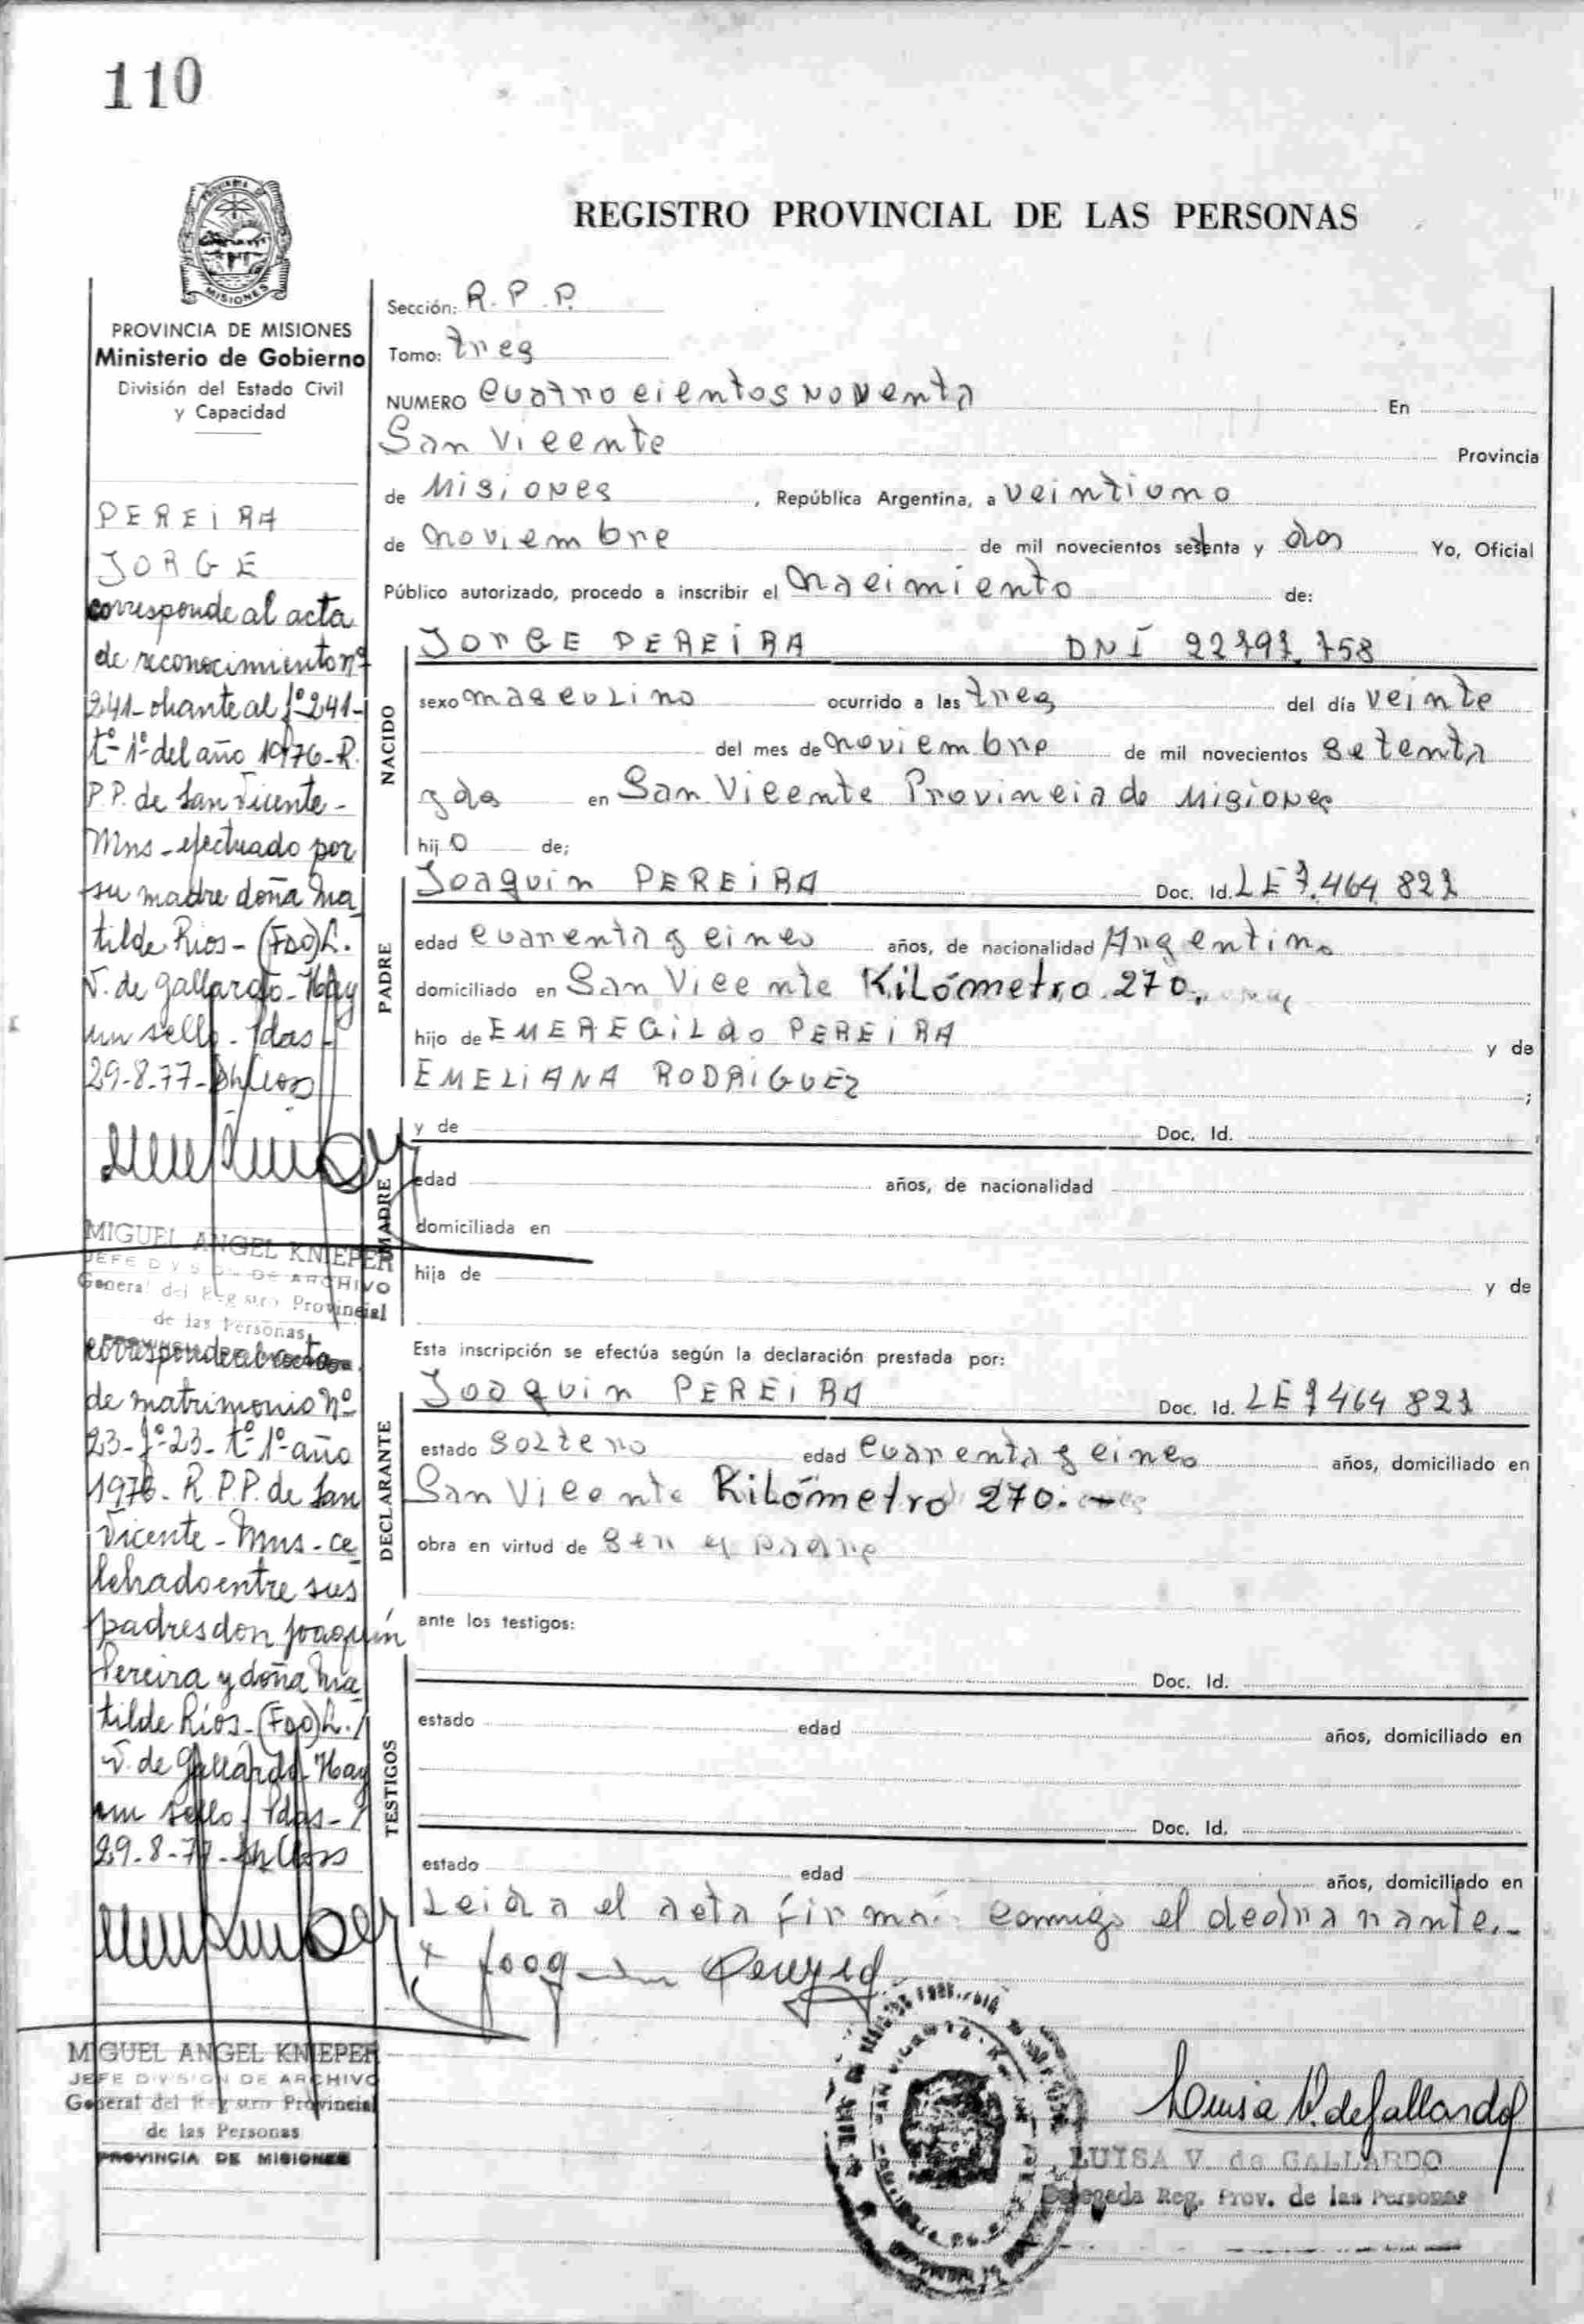 110
REGISTRO PROVINCIAL DE LAS PERSONAS
MISIONES
PROVINCIA DE MISIONES
Ministerio de Gobierno
División del Estado Civil
y Capacidad
PEREIRA
JORGE
corresponde al acta
de reconocimiento nº
241- obrante al fº 241-
tº- 1º del año 1976- R.
P.P. de San Vicente-
Mns- efectuado por
su madre doña Ma
tilde Rios- (Fdo) L.
V. de Gallardo- Hay
un sello- Pdas-
29-8-77-
MIGUEL ANGEL KNIEPER
JEFE DIVISION DE ARCHIVO
General del Registro Provincial
de las Personas
corresponde al acta
de matrimonio Nº
23- fº- 23- tº- 1º- año
1976- R.P.P. de San
Vicente- Mns- ce
lebrado entre sus
padres don Joaquín
Pereira y doña Ma
tilde Ríos- (Fdo) L./
V. de Gallardo- Hay
un sello- Pdas-/
29-8-77-
MIGUEL ANGEL KNIEPER
JEFE DIVISION DE ARCHIVO
General del Registro Provincial
de las Personas
PROVINCIA DE MISIONES
Sección: R. P. P.
Tomo: tres
NUMERO cuatrocientos noventa En
San Vicente Provincia
de Misiones, República Argentina, a veintiuno
de noviembre de mil novecientos setenta y dos Yo, Oficial
Público autorizado, procedo a inscribir el nacimiento de:
NACIDO
JORGE PEREIRA DNI 22791.758
sexo masculino ocurrido a las tres del día veinte
del mes de noviembre de mil novecientos setenta
y dos en San Vicente Provincia de Misiones
hijo de;
PADRE
Joaquin PEREIRA Doc. Id. LE 7.464 821
edad cuarenta y cinco años, de nacionalidad Argentino
domiciliado en San Vicente Kilómetro 270.
hijo de EMEREGILdo PEREIRA y de
EMELIANA RODRIGUEZ ;
MADRE
y de Doc. Id.
edad años, de nacionalidad
domiciliada en
hija de y de
Esta inscripción se efectúa según la declaración prestada por:
DECLARANTE
Joaquin PEREIRA Doc. Id. LE 7 464 821
estado soltero edad cuarenta y cinco años, domiciliado en
San Vicente Kilómetro 270.
obra en virtud de ser el padre
ante los testigos:
TESTIGOS
Doc. Id.
estado edad años, domiciliado en
Doc. Id.
estado edad años, domiciliado en
Leida el acta firma conmigo el declarante.-
Luisa V. de Gallardo
LUISA V. de GALLARDO
Delegada Reg. Prov. de las Personas